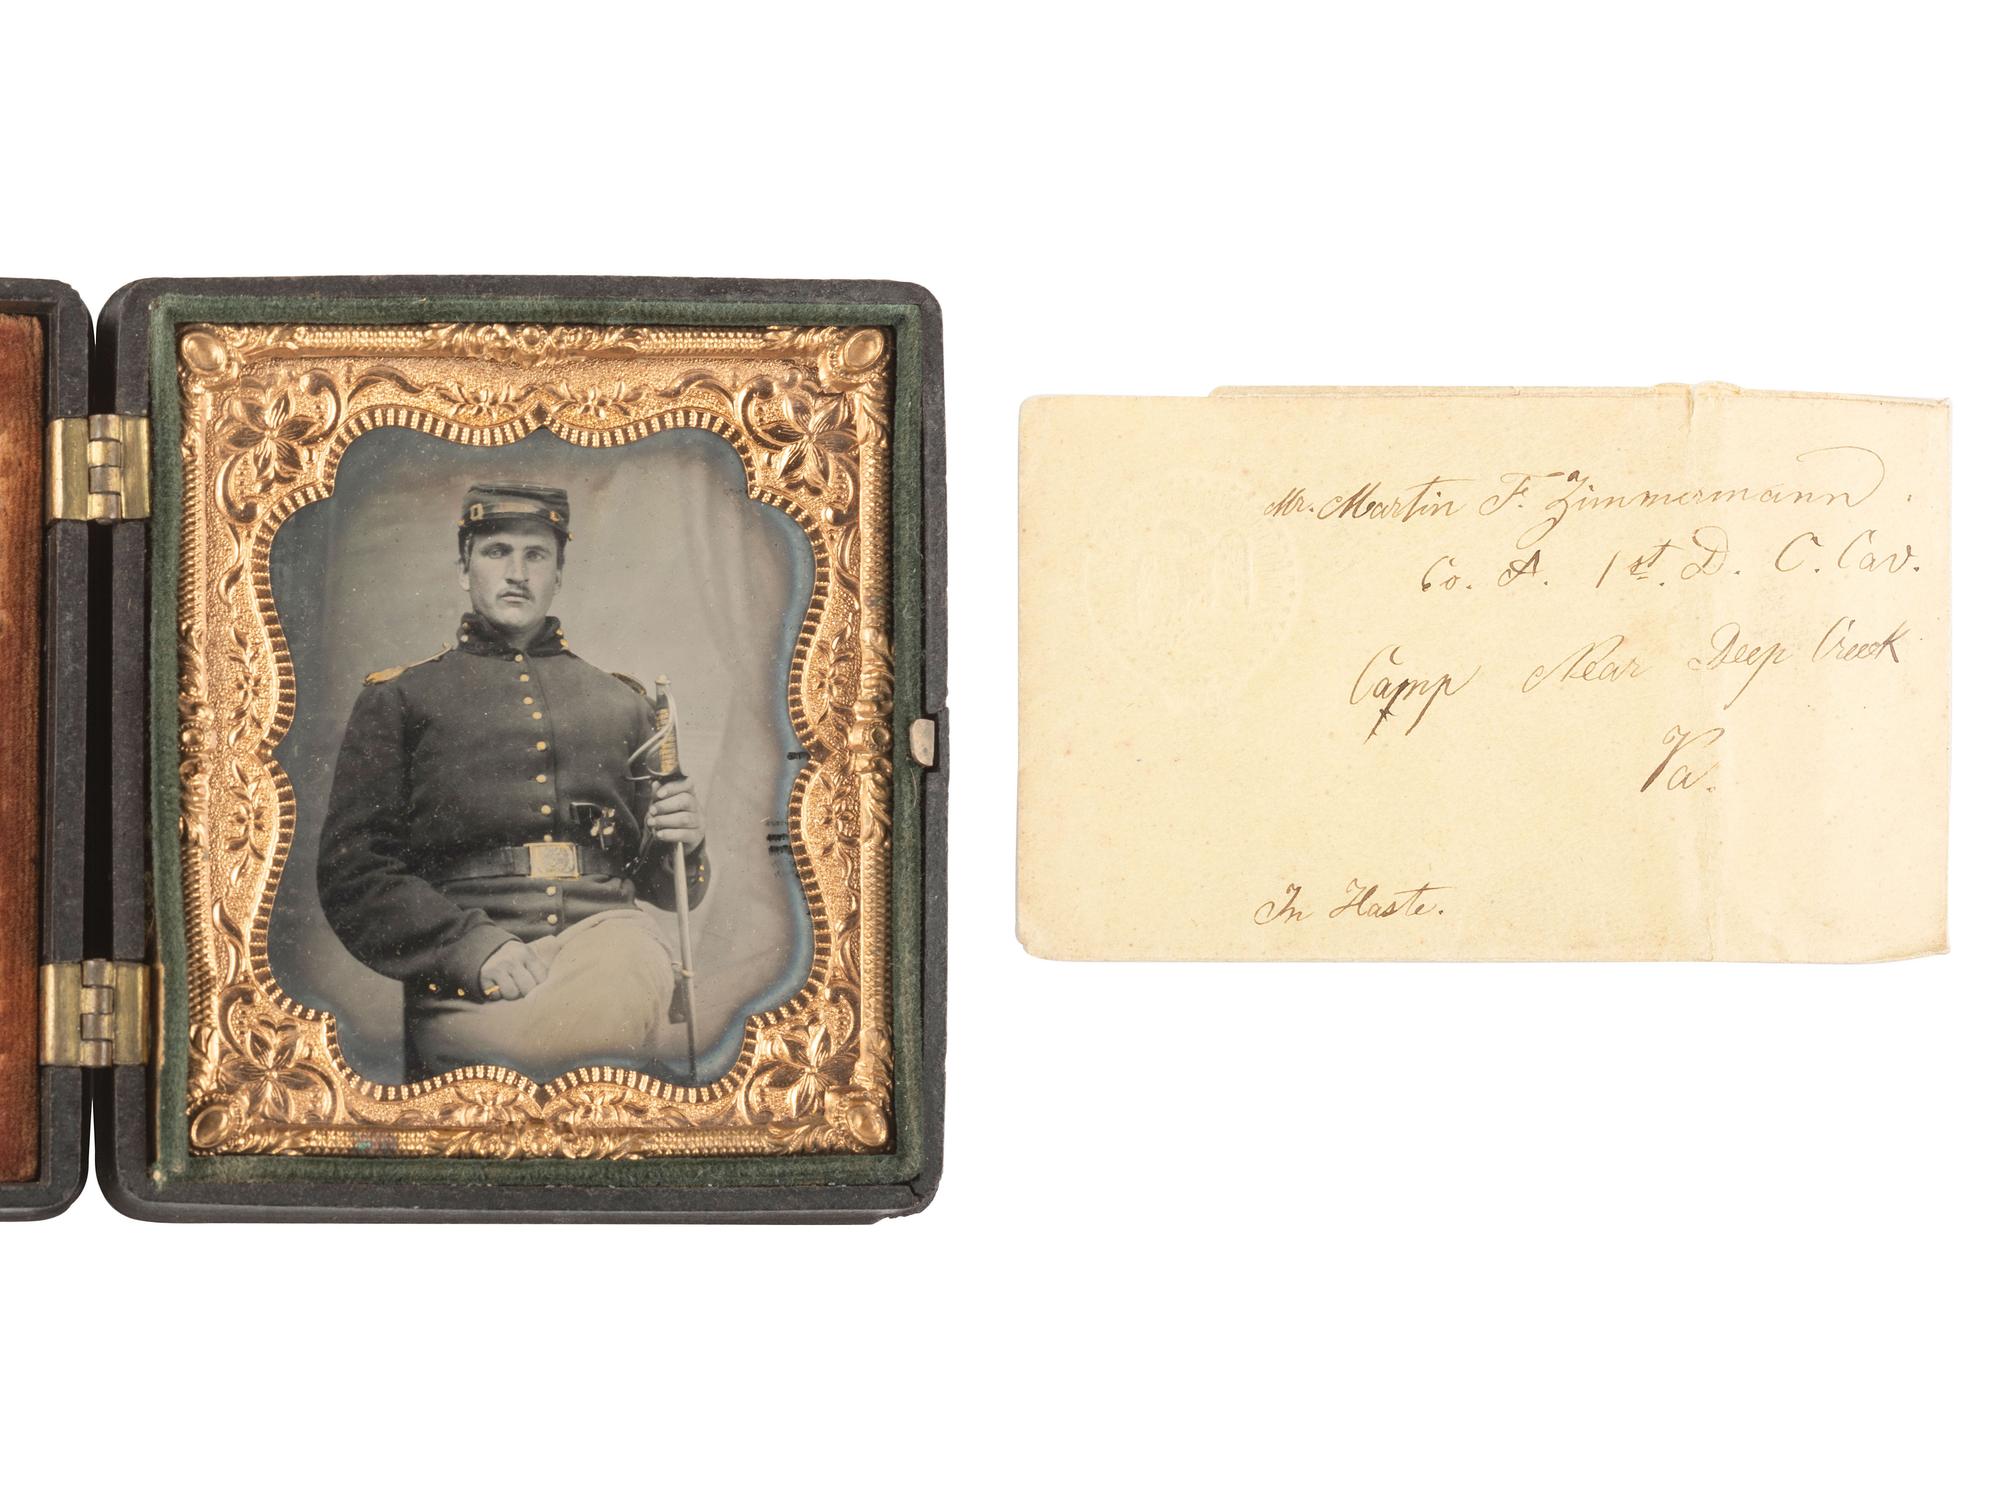 Mr. Martin F. Zimmermann.
Co. A. 1st. D. C. Cav.
Camp Near Deep Creek
Va.
In Haste.